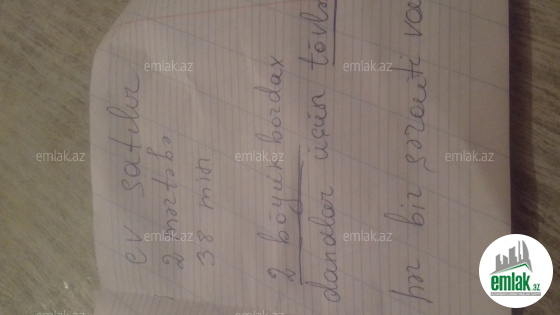 ev satılır
2 mərtəbə
38 min
2 böyük bordax
danalar üçün tövlə
hər bir şəraiti va
emlak.az
emlak.az
emlak.az
emlak.az
emlak.az
emlak.az
emlak.az
emlak.az
emlak.az
emlak.az